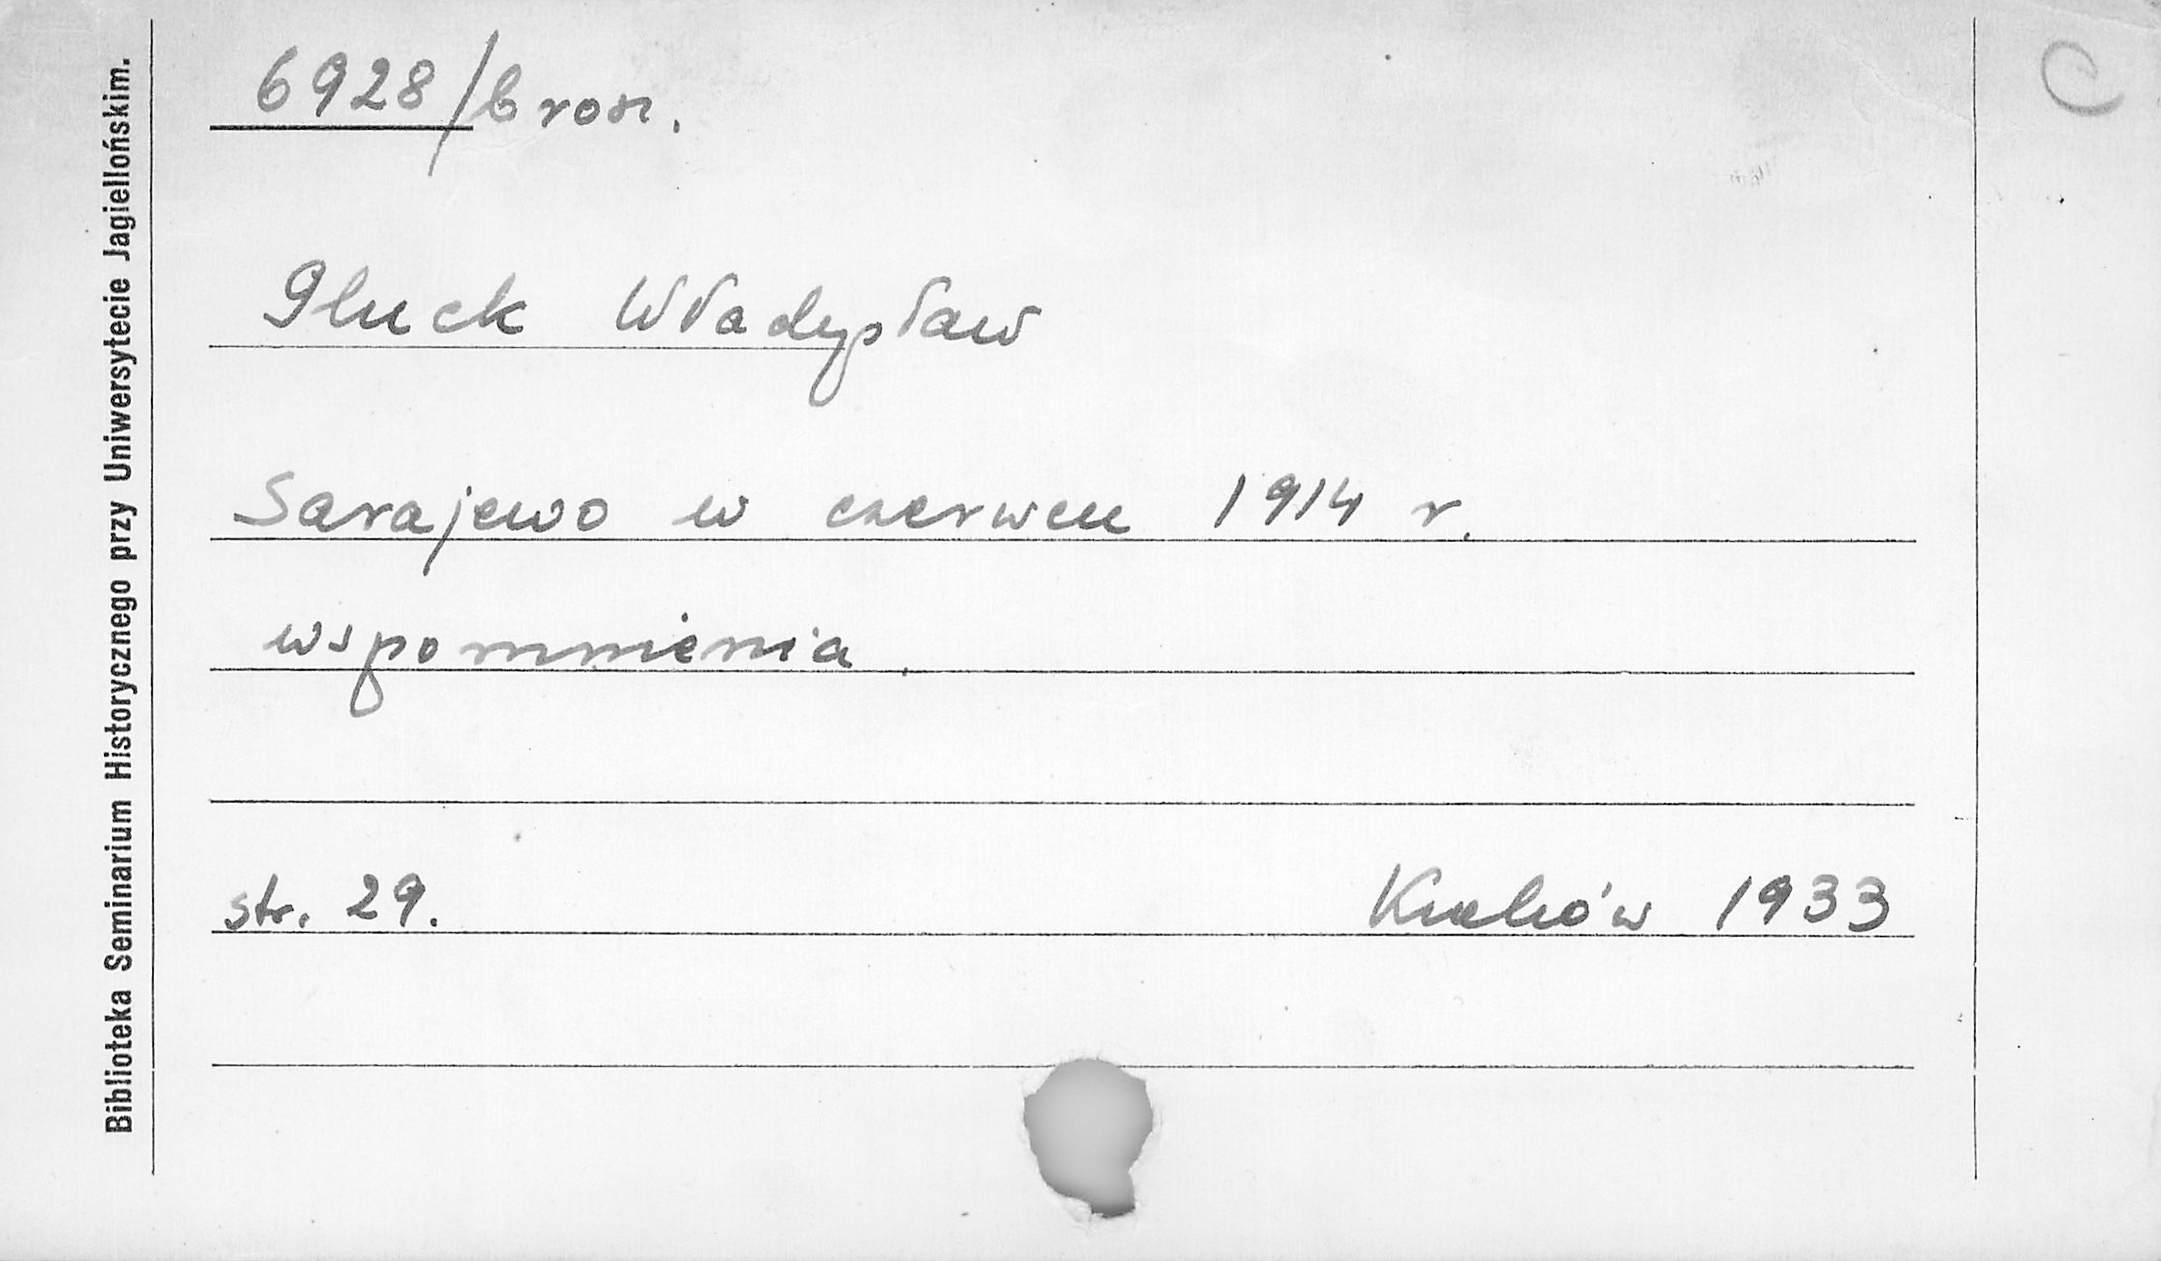 6928/brosz.
Gluck Władysław
Sarajewo w czerwcu 1914 r.
wspomnienia.
str. 29. Kraków 1933
Biblioteka Seminarium Historycznego przy Uniwersytecie Jagiellońskim.